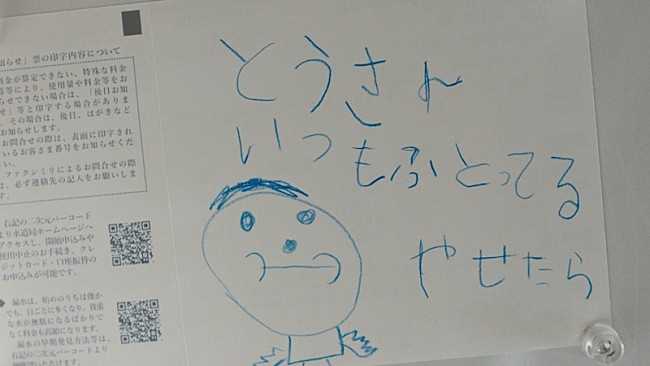 らせ」票の印字内容について
料金が算定できない、特殊な料金
等等により、使用量や料金等をお
らせできない場合は、「後日お知
せ」等と印字する場合がありま
。その場合は、後日、はがきなど
お知らせします。
お問合せの際は、表面に印字され
いるお客さま番号をお知らせくだ
い。
ファクシミリによるお問合せの際
は、必ず連絡先の記入をお願いしま
す。
右記の二次元バーコード
より水道局ホームページへ
アクセスし、開始申込みや
使用中止のお手続き、クレ
ジットカード・口座振替の
お申込みが可能です。
◆ 漏水は、始めのうちは僅か
でも、日ごとに多くなり、貴重
な水が無駄になるばかりで
なく料金も高額になります。
漏水の早期発見方法等は、
右記の二次元バーコードより
とうさん
いつもふとってる
やせたら